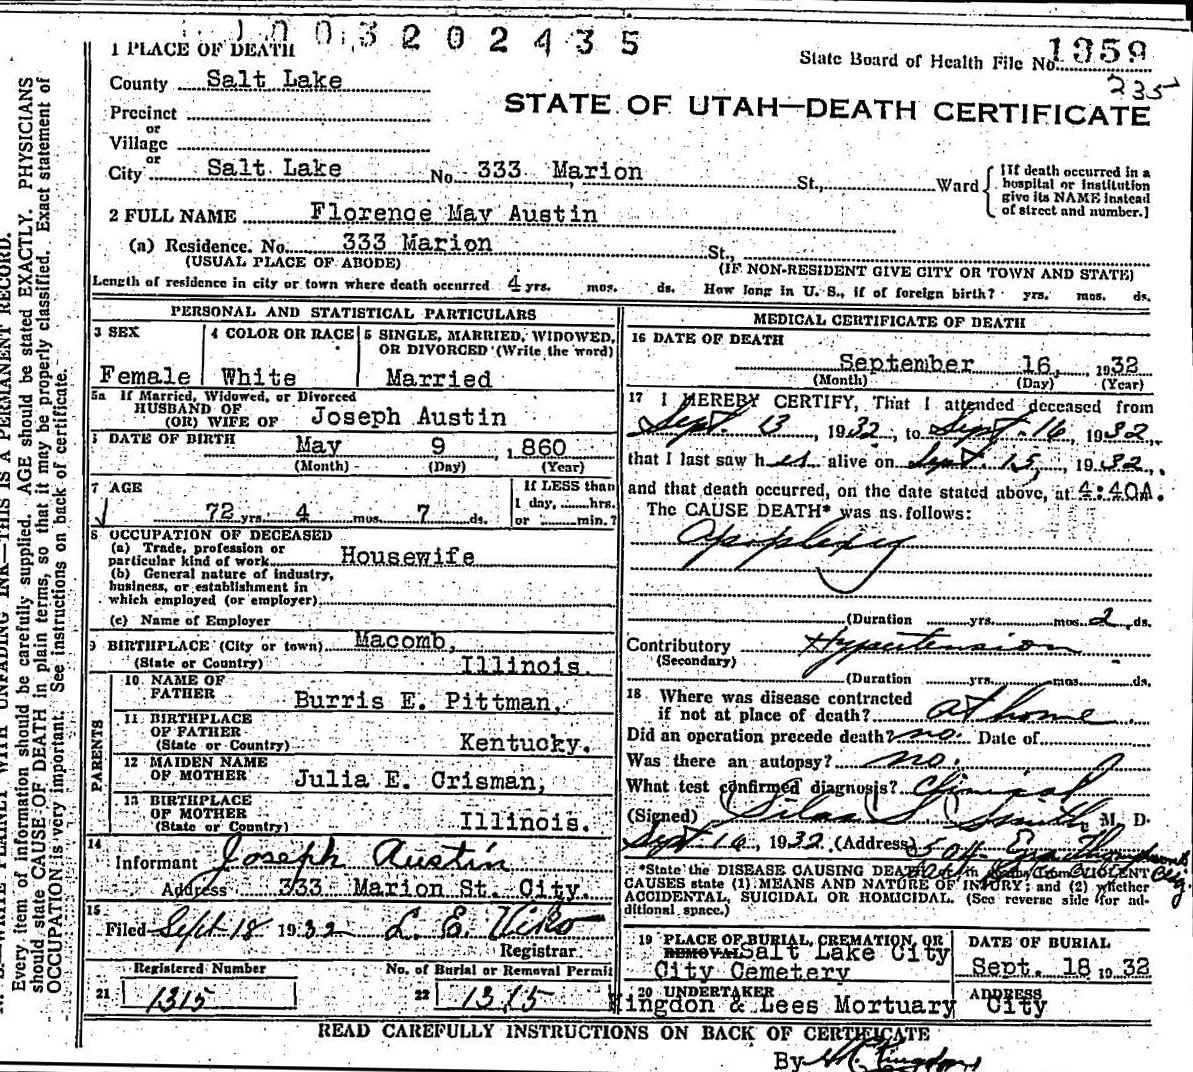 1003202435
1 PLACE OF DEATH
State Board of Health File No. 1359
235
County Salt Lake
STATE OF UTAH—DEATH CERTIFICATE
Precinct
or
Village
or
City Salt Lake No. 333 Marion St., Ward
[If death occurred in a hospital or institution give its NAME instead of street and number.]
2 FULL NAME Florence May Austin
(a) Residence. No. 333 Marion St.,
(USUAL PLACE OF ABODE) (IF NON-RESIDENT GIVE CITY OR TOWN AND STATE)
Length of residence in city or town where death occurred 4 yrs. mos. ds. How long in U. S., if of foreign birth? yrs. mos. ds.
PERSONAL AND STATISTICAL PARTICULARS
3 SEX 4 COLOR OR RACE 5 SINGLE, MARRIED, WIDOWED,
OR DIVORCED (Write the word)
Female White Married
5a If Married, Widowed, or Divorced
HUSBAND OF
(OR) WIFE OF Joseph Austin
DATE OF BIRTH May 9, 1860
(Month) (Day) (Year)
7 AGE If LESS than
1 day, hrs.
72 yrs. 4 mos. 7 ds. or min.?
8 OCCUPATION OF DECEASED
(a) Trade, profession or
particular kind of work Housewife
(b) General nature of industry,
business, or establishment in
which employed (or employer)
(c) Name of Employer
9 BIRTHPLACE (City or town) Macomb,
(State or Country) Illinois.
PARENTS
10 NAME OF
FATHER Burris E. Pittman,
11 BIRTHPLACE
OF FATHER
(State or Country) Kentucky.
12 MAIDEN NAME
OF MOTHER Julia E. Crisman,
13 BIRTHPLACE
OF MOTHER
(State or Country) Illinois.
14
Informant Joseph Austin
Address 333 Marion St. City.
15
Filed Sept 18 1932 L. E. Viko
Registrar.
Registered Number No. of Burial or Removal Permit
21 1315 22 1315
MEDICAL CERTIFICATE OF DEATH
16 DATE OF DEATH
September 16, 1932
(Month) (Day) (Year)
17 I HEREBY CERTIFY, That I attended deceased from
Sept. 13, 1932, to Sept. 16, 1932,
that I last saw her alive on Sept. 15, 1932,
and that death occurred, on the date stated above, at 4:40A.
The CAUSE DEATH* was as follows:
Apoplexy
(Duration yrs. mos. 2 ds.
Contributory Hypertension
(Secondary)
(Duration yrs. mos. ds.
18 Where was disease contracted
if not at place of death? at home
Did an operation precede death? no. Date of
Was there an autopsy? no.
What test confirmed diagnosis? Clinical
(Signed) Silas S. Smith, M. D.
Sept. 16, 1932 (Address) 504 Ezra Thompson Bldg.
*State the DISEASE CAUSING DEATH VIOLENT
CAUSES state (1) MEANS AND NATURE OF INJURY; and (2) whether
ACCIDENTAL, SUICIDAL OR HOMICIDAL. (See reverse side for ad-
ditional space.)
19 PLACE OF BURIAL, CREMATION, OR DATE OF BURIAL
REMOVAL Salt Lake City
City Cemetery Sept. 18 1932
20 UNDERTAKER ADDRESS
Kingdon & Lees Mortuary City
READ CAREFULLY INSTRUCTIONS ON BACK OF CERTIFICATE
By Kingdon
WRITE PLAINLY WITH UNFADING INK—THIS IS A PERMANENT RECORD.
Every item of information should be carefully supplied. AGE should be stated EXACTLY. PHYSICIANS
should state CAUSE OF DEATH in plain terms, so that it may be properly classified. Exact statement of
OCCUPATION is very important. See instructions on back of certificate.